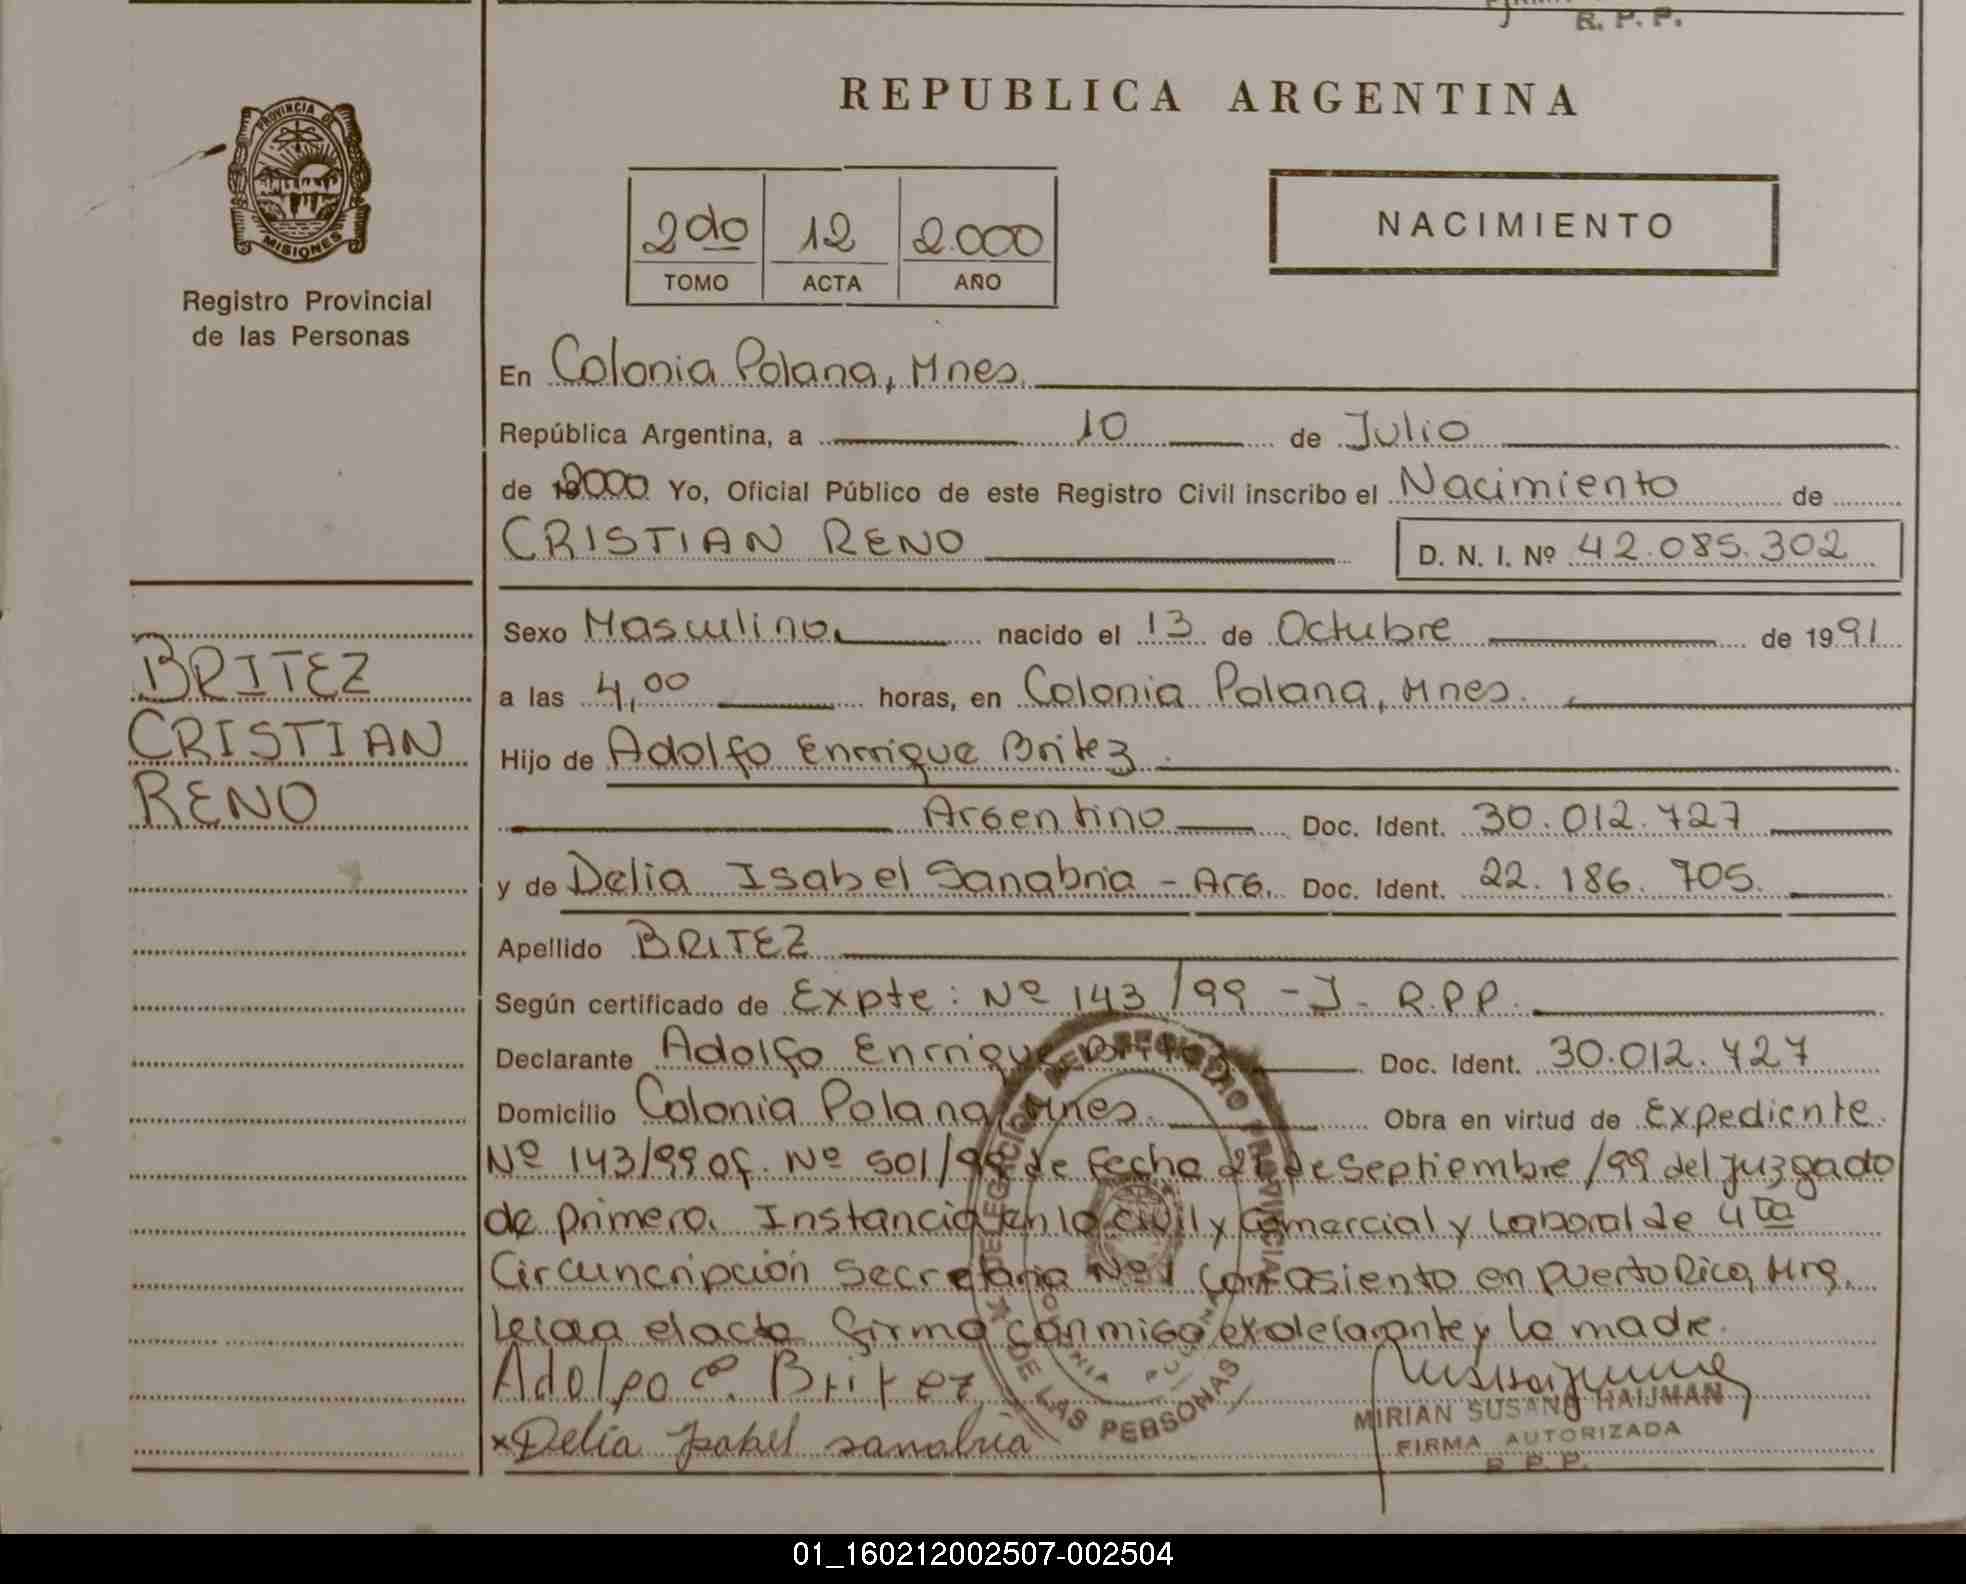 R. P. P.
REPUBLICA ARGENTINA
PROVINCIA DE
MISIONES
Registro Provincial
de las Personas
2do 12 2.000
TOMO ACTA AÑO
NACIMIENTO
En Colonia Polana, Mnes.
República Argentina, a 10 de Julio
de 2000 Yo, Oficial Público de este Registro Civil inscribo el Nacimiento de
CRISTIAN RENO D. N. I. Nº 42.085.302
Sexo Masculino nacido el 13 de Octubre de 1991
a las 4,00 horas, en Colonia Polana, Mnes.
Hijo de Adolfo Enrrique Britez
Argentino Doc. Ident. 30.012.727
y de Delia Isabel Sanabria - Arg. Doc. Ident. 22.186.705.
Apellido BRITEZ
Según certificado de Expte: Nº 143/99 - J. R.P.P.
Declarante Adolfo Enrrique Britez Doc. Ident. 30.012.727
Domicilio Colonia Polana, Mnes. Obra en virtud de Expediente
Nº 143/99 of. Nº 501/99 de fecha de Septiembre/99 del Juzgado
de primera Instancia en lo Civil y Comercial y Laboral de 4ta
Circuncripción Secretaria Nº 1 con asiento en Puerto Rico, Mns.
Leida el acta firma conmigo el declarante y la madre.
Adolfo E. Britez
x Delia Isabel Sanabria
MIRIAN SUSANA HAIJMAN
FIRMA AUTORIZADA
R. P. P.
BRITEZ
CRISTIAN
RENO
DELEGACION DEL REGISTRO PROVINCIAL
DE LAS PERSONAS
01_160212002507-002504